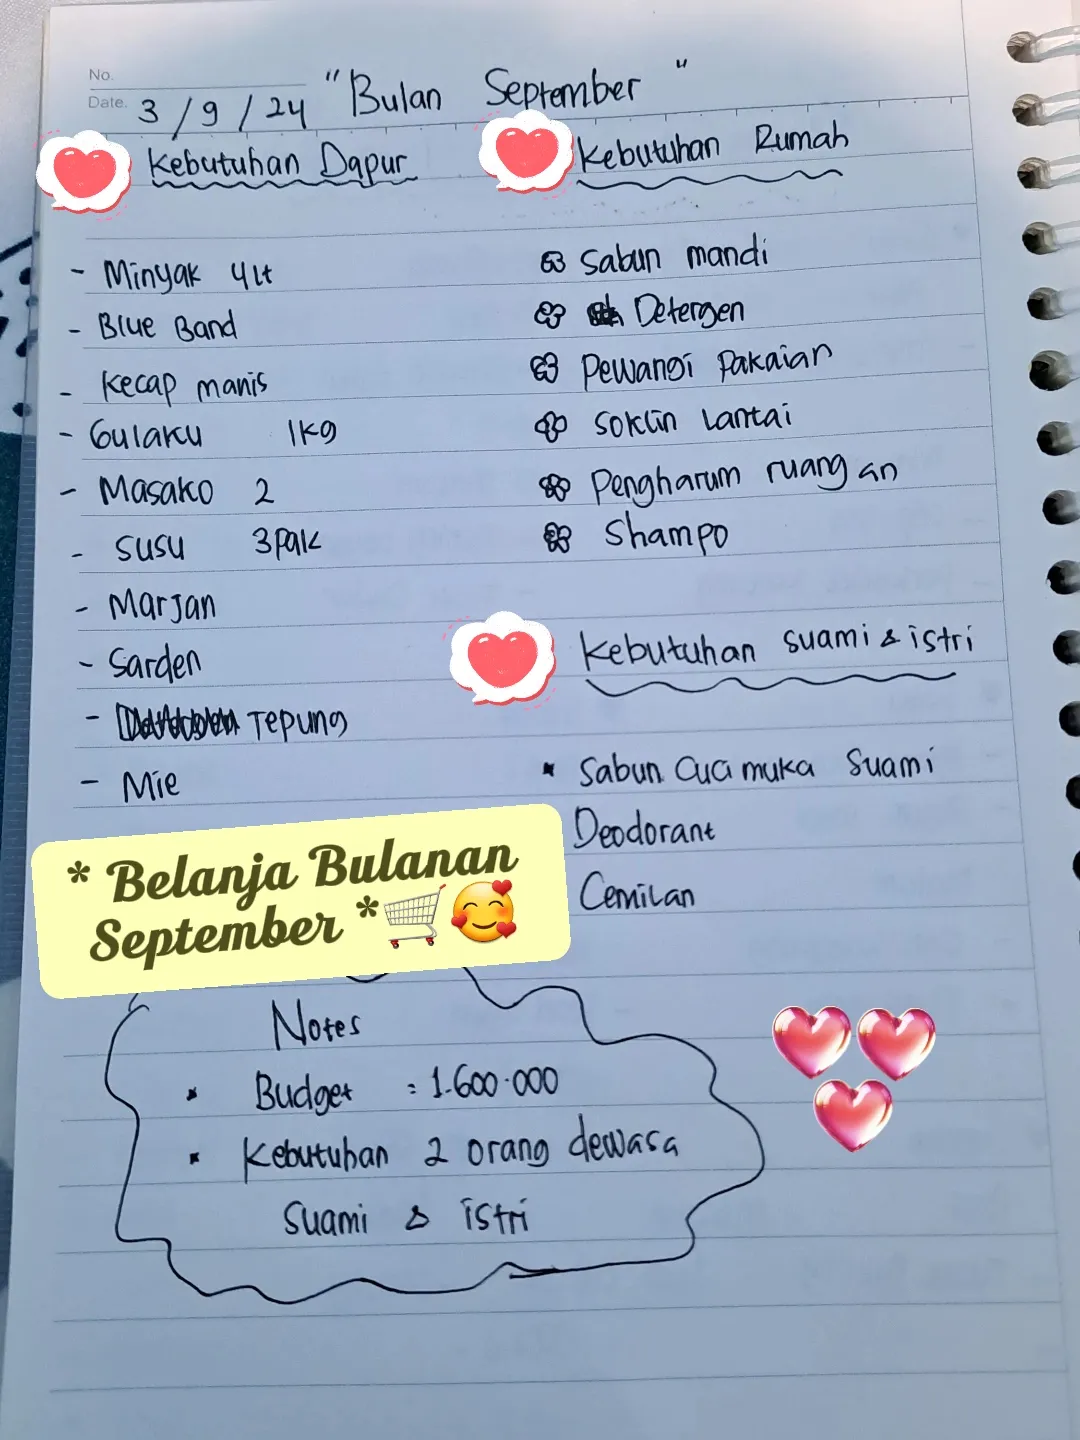 No.
Date. 3/9/24 "Bulan September"
Kebutuhan Dapur
- Minyak 4Lt
- Blue Band
- Kecap manis
- Gulaku 1kg
- Masako 2
- Susu 3 Pak
- Marjan
- Sarden
- Tepung
- Mie
Kebutuhan Rumah
Sabun mandi
Detergen
Pewangi Pakaian
Soklin Lantai
Pengharum ruangan
Shampo
Kebutuhan suami & istri
Sabun Cuci muka Suami
Deodorant
Cemilan
* Belanja Bulanan
September *
Notes
Budget : 1.600.000
Kebutuhan 2 orang dewasa
Suami & istri